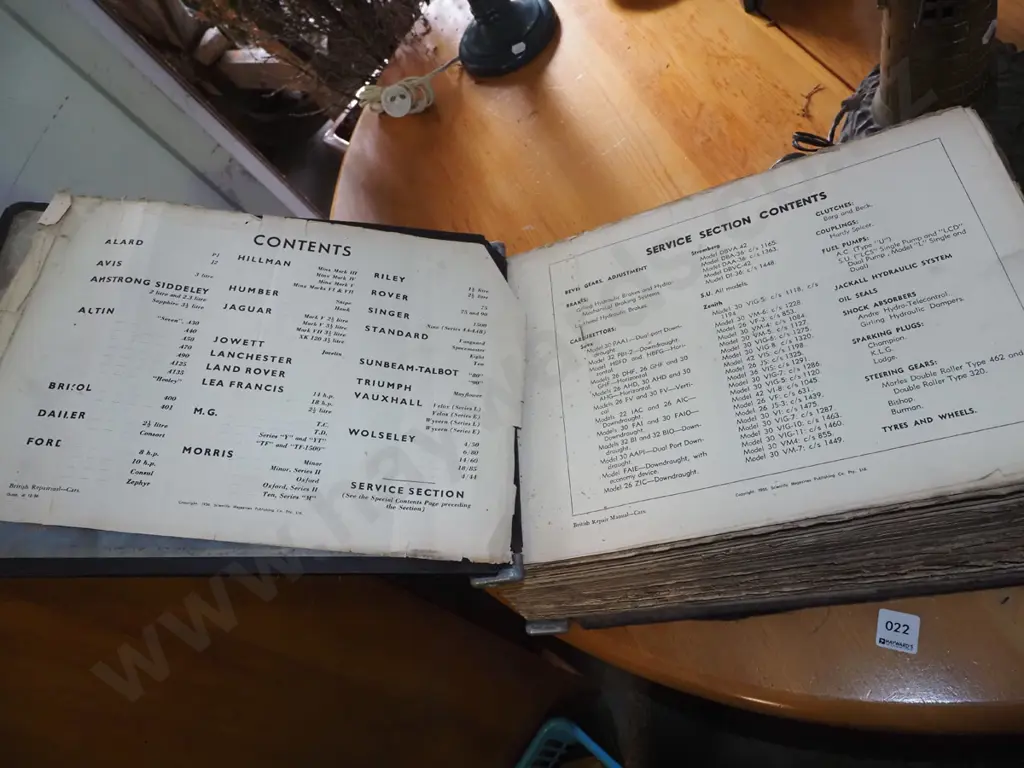 CONTENTS
ALARD
P1
L2
AVIS
3 litre
ARMSTRONG SIDDELEY
2 litre and 2.3 litre
Sapphire 3½ litre
"Seven", 430
440
450
470
490
A125
A135
"Healey"
400
401
2½ litre
Consort
FORD
8 h.p.
10 h.p.
Consul
Zephyr
British Repair Manual—Cars.
HILLMAN
Minx Mark III
Minx Mark IV
Minx Mark V
Minx Marks VI & VII
HUMBER
Snipe
Hawk
JAGUAR
Mark V 2½ litre
Mark V 3½ litre
Mark VII 3½ litre
XK 120 3½ litre
JOWETT
Javelin
LANCHESTER
LAND ROVER
LEA FRANCIS
14 h.p.
18 h.p.
2½ litre
M.G.
T.C.
T.D.
Series "Y" and "YT"
"TF" and "TF-1500"
MORRIS
Minor
Minor, Series II
Oxford
Oxford, Series II
Ten, Series "M"
RILEY
1½ litre
2½ litre
ROVER
75 and 90
SINGER
1500
Nine (Series 4A-4AB)
STANDARD
Vanguard
Spacemaster
Eight
Ten
SUNBEAM-TALBOT
"80"
"90"
TRIUMPH
Mayflower
VAUXHALL
Velox (Series L)
Velox (Series E)
Wyvern (Series L)
Wyvern (Series E)
WOLSELEY
4/50
6/80
14/60
18/85
4/44
SERVICE SECTION
(See the Special Contents Page preceding
the Section)
Copyright 1956, Scientific Magazines Publishing Co. Pty. Ltd.
SERVICE SECTION CONTENTS
BEVEL GEARS, ADJUSTMENT
BRAKES:
Girling Hydraulic Brakes and Hydro-
Mechanical Braking Systems.
Lockheed Hydraulic Brakes.
CARBURETTORS:
Solex
Model 30 PAAI—Dual-port Down-
draught.
Model 32 PBI-2—Downdraught.
Model HSFD and HBFG—Hori-
zontal.
Models 26 DHF, 26 GHF and 30
GHF—Horizontal.
Models 26 AHD, 30 AHD and 30
AHG—Horizontal.
Models 26 FV and 30 FV—Verti-
cal.
Models 22 IAC and 26 AIC—
Downdraught.
Models 30 FAI and 30 FAIO—
Downdraught.
Models 32 BI and 32 BIO—Down-
draught.
Model 30 AAPI—Dual Port Down-
draught.
Model FAIE—Downdraught, with
economy device.
Model 26 ZIC—Downdraught.
Stromberg
Model DBVA-42
Model DBA-36: c/s 1165.
Model DAA-36: c/s 1363.
Model DBVC-42
Model DI-36: c/s 1448.
S.U. All models.
Zenith
Model 30 VIG-5: c/s 1118, c/s
1184.
Model 30 VM-6: c/s 1228.
Model 30 VF-3: c/s 853.
Model 30 VM-4: c/s 1084.
Model 30 VM-5: c/s 1127.
Model 30 VIG-8: c/s 1275.
Model 30 VIG 8: c/s 1320.
Model 42 VIS: c/s 1198.
Model 26 JS: c/s 1325.
Model 36 VIS: c/s 1291.
Model 30 VIG-7: c/s 1286.
Model 30 VIG-5: c/s 1120.
Model 42 VI-8: c/s 1045.
Model 26 VF: c/s 631.
Model 26 JS-3: c/s 1439.
Model 30 VI: c/s 1475.
Model 30 VIG-7: c/s 1287.
Model 30 VIG-10: c/s 1463.
Model 30 VIG-11: c/s 1460.
Model 30 VM4: c/s 855.
Model 30 VM-7: c/s 1449.
CLUTCHES:
Borg and Beck.
COUPLINGS:
Hardy Spicer.
FUEL PUMPS:
A.C. (Type "U")
S.U. ("LCS" Single Pump and "LCD"
Dual Pump, Model "L" Single and
Dual)
JACKALL HYDRAULIC SYSTEM
OIL SEALS
SHOCK ABSORBERS
Andre Hydro-Telecontrol.
Girling Hydraulic Dampers
SPARKING PLUGS:
Champion.
K.L.G.
Lodge.
STEERING GEARS:
Marles Double Roller Type 462 and
Double Roller Type 320.
Bishop.
Burman.
TYRES AND WHEELS.
Copyright 1956, Scientific Magazines Publishing Co. Pty. Ltd.
British Repair Manual—Cars.
022
HAYWARDS